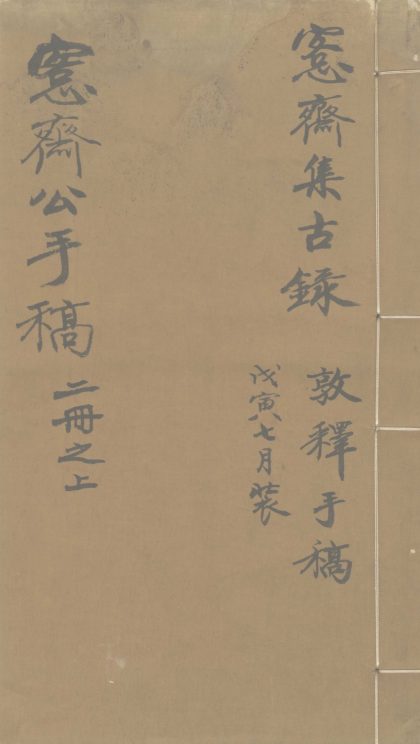 愙齋集古錄
敦釋手稿
戊寅八七月裝
愙齋公手稿
二冊之上